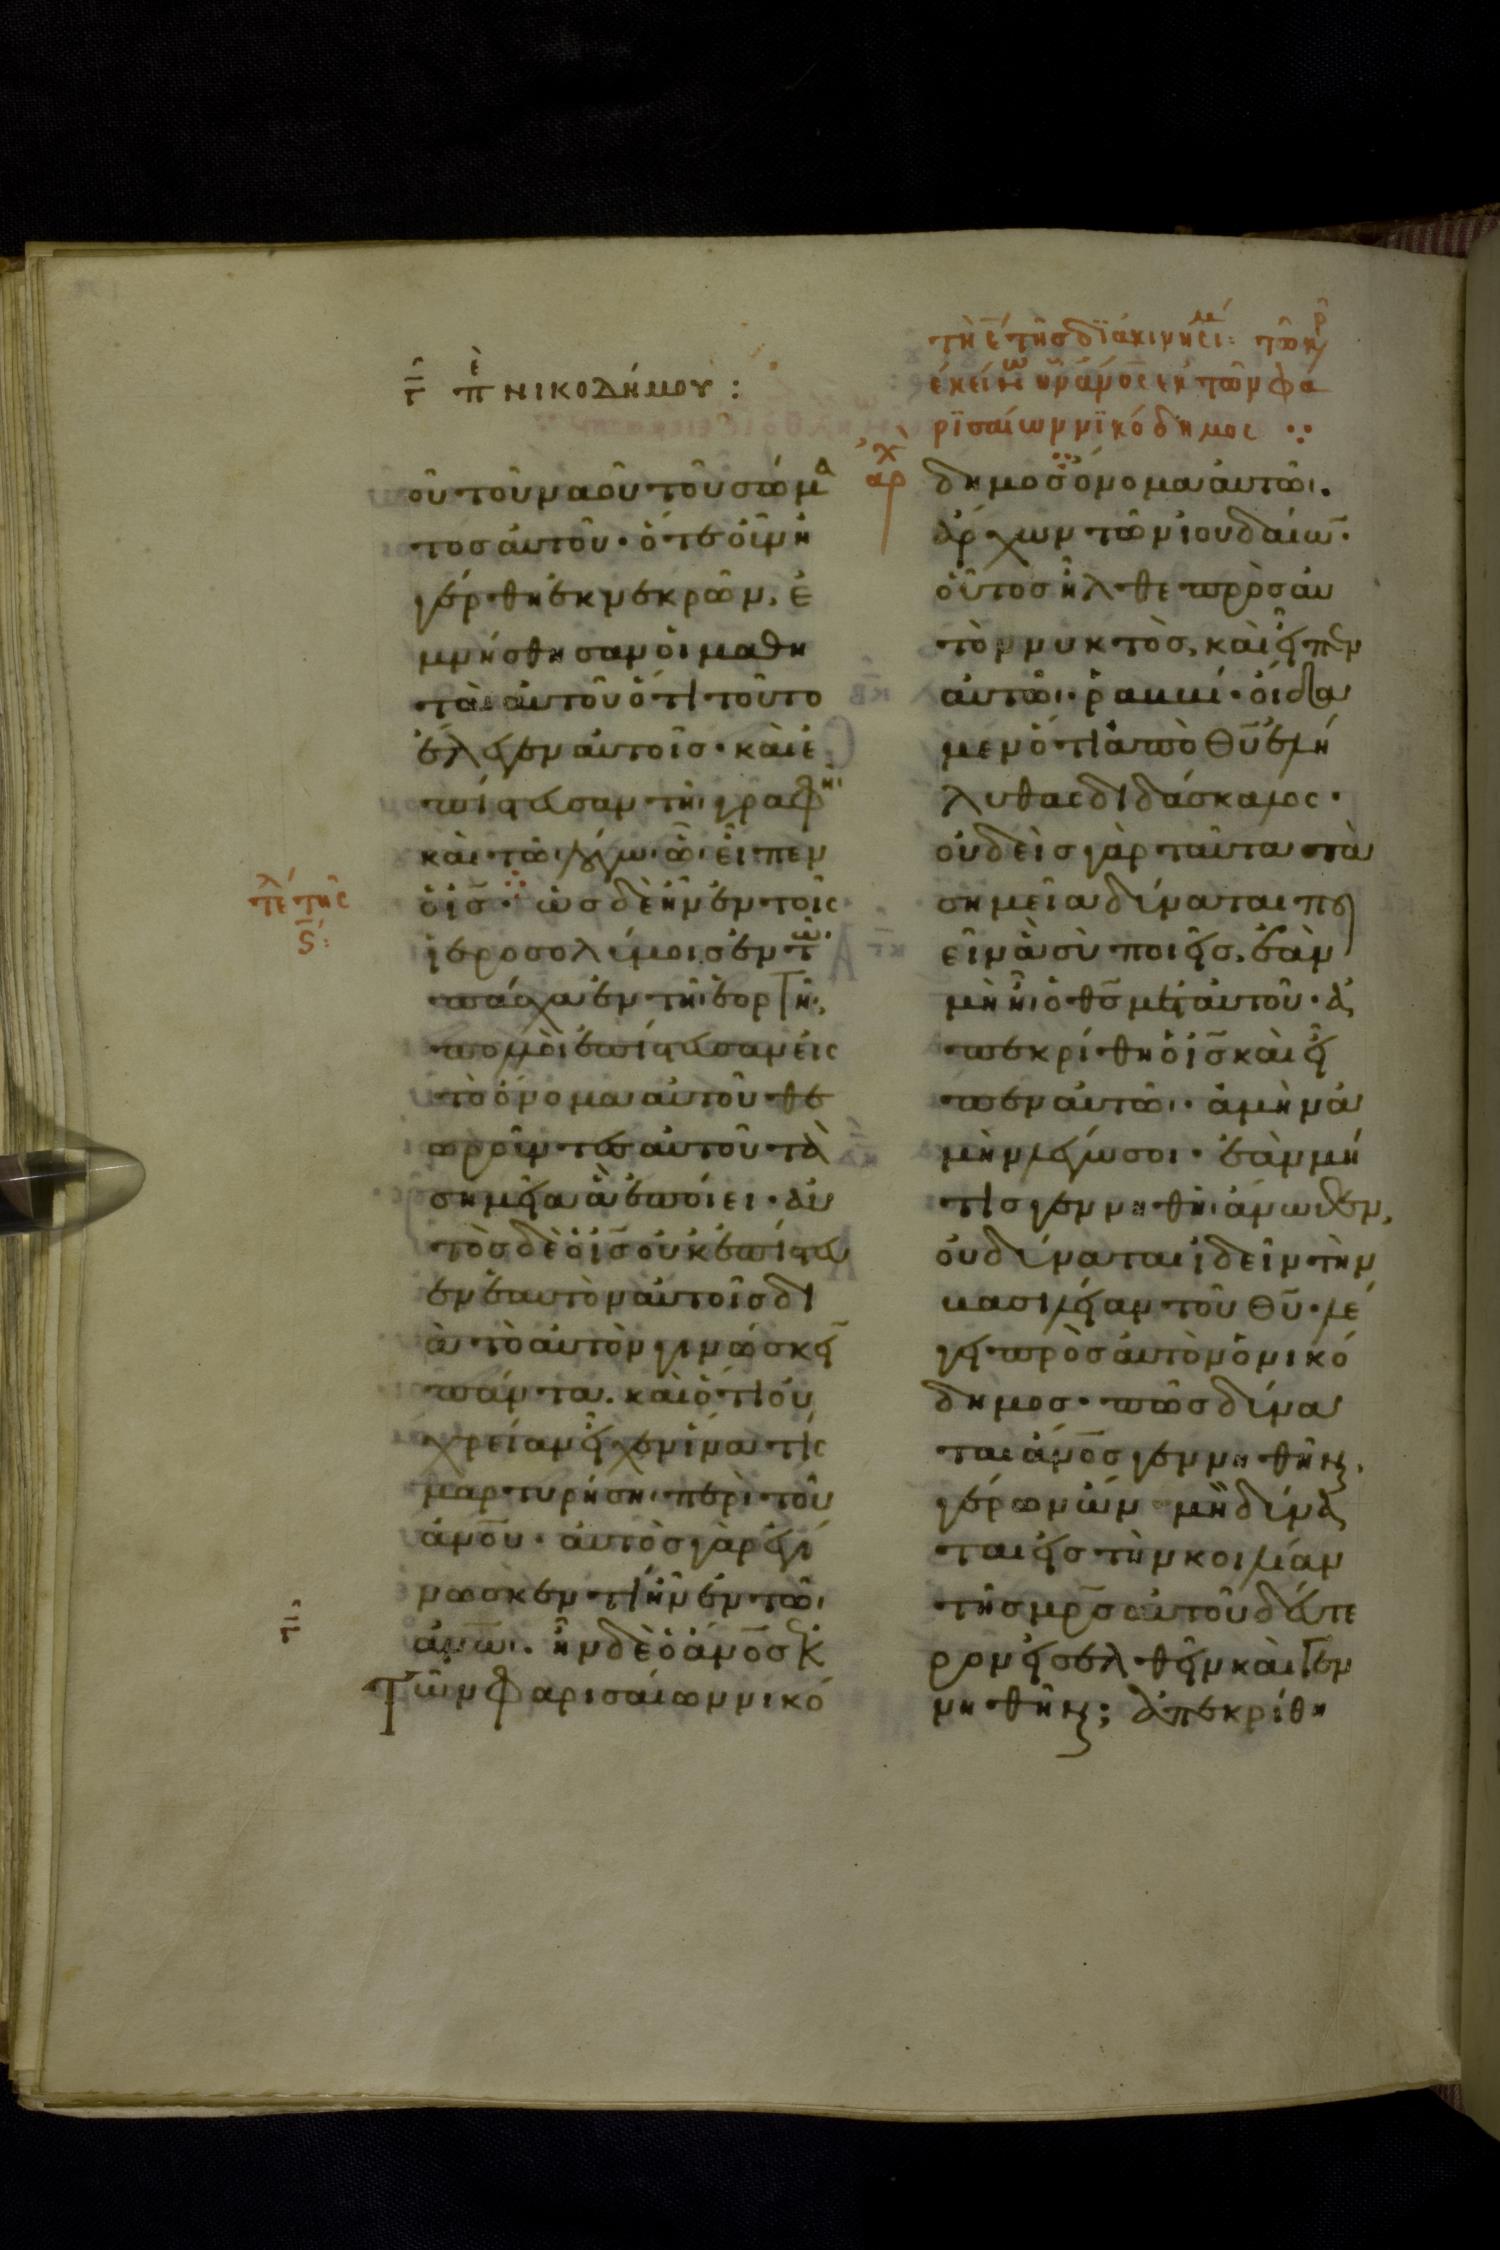 γ̄ πὲ ΝΙΚΟΔΉΜΟΥ :
οῦ τοῦ ναοῦ τοῦ σώμα
τοσ αὐτοῦ · ὅτε οὖν ἠ
γέρθη ἐκ νεκρῶν, ἐ
μνήσθησαν οἱ μαθη
ταὶ αὐτοῦ ὅτι τοῦτο
ἔλεγεν αὐτοῖσ · καὶ ἐ
πίστευσαν τῆι γραφῆι
καὶ τῶι λόγωι ὧι εἶπεν
ὁ ἰσ̄ · ὡσ δὲ ἦν ἐν τοῖς
ἱεροσολύμοισ ἐν τῶι
πάσχα ἐν τῆι ἑορτῆι,
πολλοὶ ἐπίστευσαν εἰς
τὸ ὄνομα αὐτοῦ θε
ωροῦντεσ αὐτοῦ τὰ
σημεῖα ἃ ἐποίει · αὐ
τὸσ δὲ ὁ ἰσ̄ οὐκ ἐπίστευ
εν ἑαυτὸν αὐτοῖσ δι
ὰ τὸ αὐτὸν γινώσκειν
πάντα. καὶ ὅτι οὐ
χρείαν εἶχεν ἵνα τίς
μαρτυρήσηι περὶ τοῦ
ἀν̄ου · αὐτὸσ γὰρ ἐγί
νωσκεν τί ἦν ἐν τῶι
ἀν̄ωι. ἦν δὲ ὁ ἀν̄οσ ἐκ
Τῶν φαρισαίων νικό
τε̄λ τῆς
ς̄ :
γ̄
τῆ ε̄ τῆσ διακινησί : τῶ κρ
ἐκείνω ἦν ἀν̄ος ἐκ τῶν φα
ρϊσαίων νϊκόδημος
ἀρχ
δημοσ ὄνομα αὐτῶι.
ἄρχων τῶν ἰουδαίω̄ ·
οὗτοσ ἦλθε πρὸσ αὐ
τὸν νυκτὸσ, καὶ εἶπεν
αὐτῶι · ῥαββί · οἴδα
μεν ὅτι ἀπὸ θ̄υ ἐλή
λυθας διδάσκαλος ·
οὐδεὶσ γὰρ ταῦτα τὰ
σημεῖα δύναται ποι
εῖν ἃ σὺ ποιεῖσ, ἐὰν
μὴ ἦι ὁ θσ̄ μετ' αὐτοῦ · ἀ
πεκρίθη ὁ ἰσ̄ καὶ εἶ
πεν αὐτῶι · ἀμὴν ἀ
μὴν λέγω σοι · ἐὰν μή
τισ γεννηθῆι ἄνωθεν,
οὐ δύναται ἰδεῖν τὴν
βασιλείαν τοῦ θ̄υ · λέ
γει πρὸσ αὐτὸν ὁ νικό
δημοσ · πῶσ δύνα
ται ἀν̄οσ γεννηθῆναι,
γέρων ὤν μὴ δύνα
ται εἰσ τὴν κοιλίαν
τῆσ μρ̄σ αὐτοῦ δεύτε
ρον εἰσελθεῖν καὶ γεν
νηθῆναι; ἀπεκρίθη